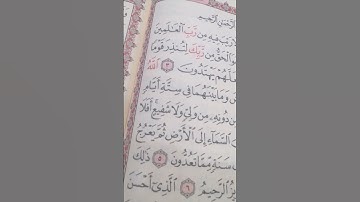 الرَّحْمَٰنِ الرَّحِيمِ
رَيْبَ فِيهِ مِن رَّبِّ الْعَالَمِينَ
هُوَ الْحَقُّ مِن رَّبِّكَ لِتُنذِرَ قَوْمًا
لَعَلَّهُمْ يَهْتَدُونَ ٣ اللَّهُ
وَمَا بَيْنَهُمَا فِي سِتَّةِ أَيَّامٍ
دُونِهِ مِن وَلِيٍّ وَلَا شَفِيعٍ أَفَلَا
السَّمَاءِ إِلَى الْأَرْضِ ثُمَّ يَعْرُجُ
سَنَةٍ مِّمَّا تَعُدُّونَ ٥ ذَٰلِكَ
الرَّحِيمُ ٦ الَّذِي أَحْسَنَ